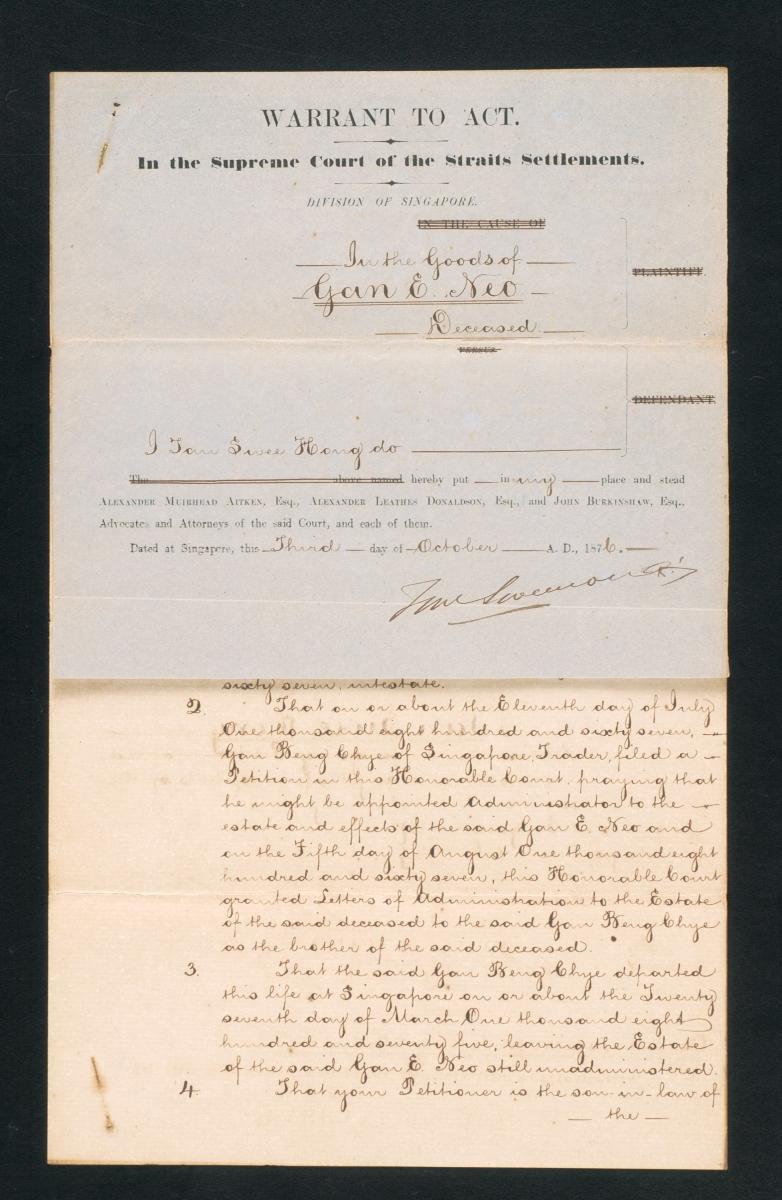 WARRANT TO ACT.
In the Supreme Court of the Straits Settlements.
DIVISION OF SINGAPORE.
IN THE CAUSE OF
In the Goods of
Gan E. Neo
PLAINTIFF.
Deceased.
VERSUS
DEFENDANT
I Tan Swee Hong do
The above named hereby put in my place and stead
ALEXANDER MUIRHEAD AITKEN, Esq., ALEXANDER LEATHES DONALDSON, Esq., and JOHN BURKINSHAW, Esq.,
Advocates and Attorneys of the said Court, and each of them.
Dated at Singapore, this Third day of October A. D., 1876.
sixty seven, intestate.
2. That on or about the Eleventh day of July
One thousand eight hundred and sixty seven,
Gan Beng Chye of Singapore, Trader, filed a
Petition in this Honorable Court, praying that
he might be appointed Administrator to the
estate and effects of the said Gan E. Neo and
on the Fifth day of August One thousand eight
hundred and sixty seven, this Honorable Court
granted Letters of Administration to the Estate
of the said deceased to the said Gan Beng Chye
as the brother of the said deceased.
3. That the said Gan Beng Chye departed
this life at Singapore on or about the Twenty
seventh day of March One thousand eight
hundred and seventy five, leaving the Estate
of the said Gan E. Neo still unadministered.
4. That your Petitioner is the son-in-law of
the